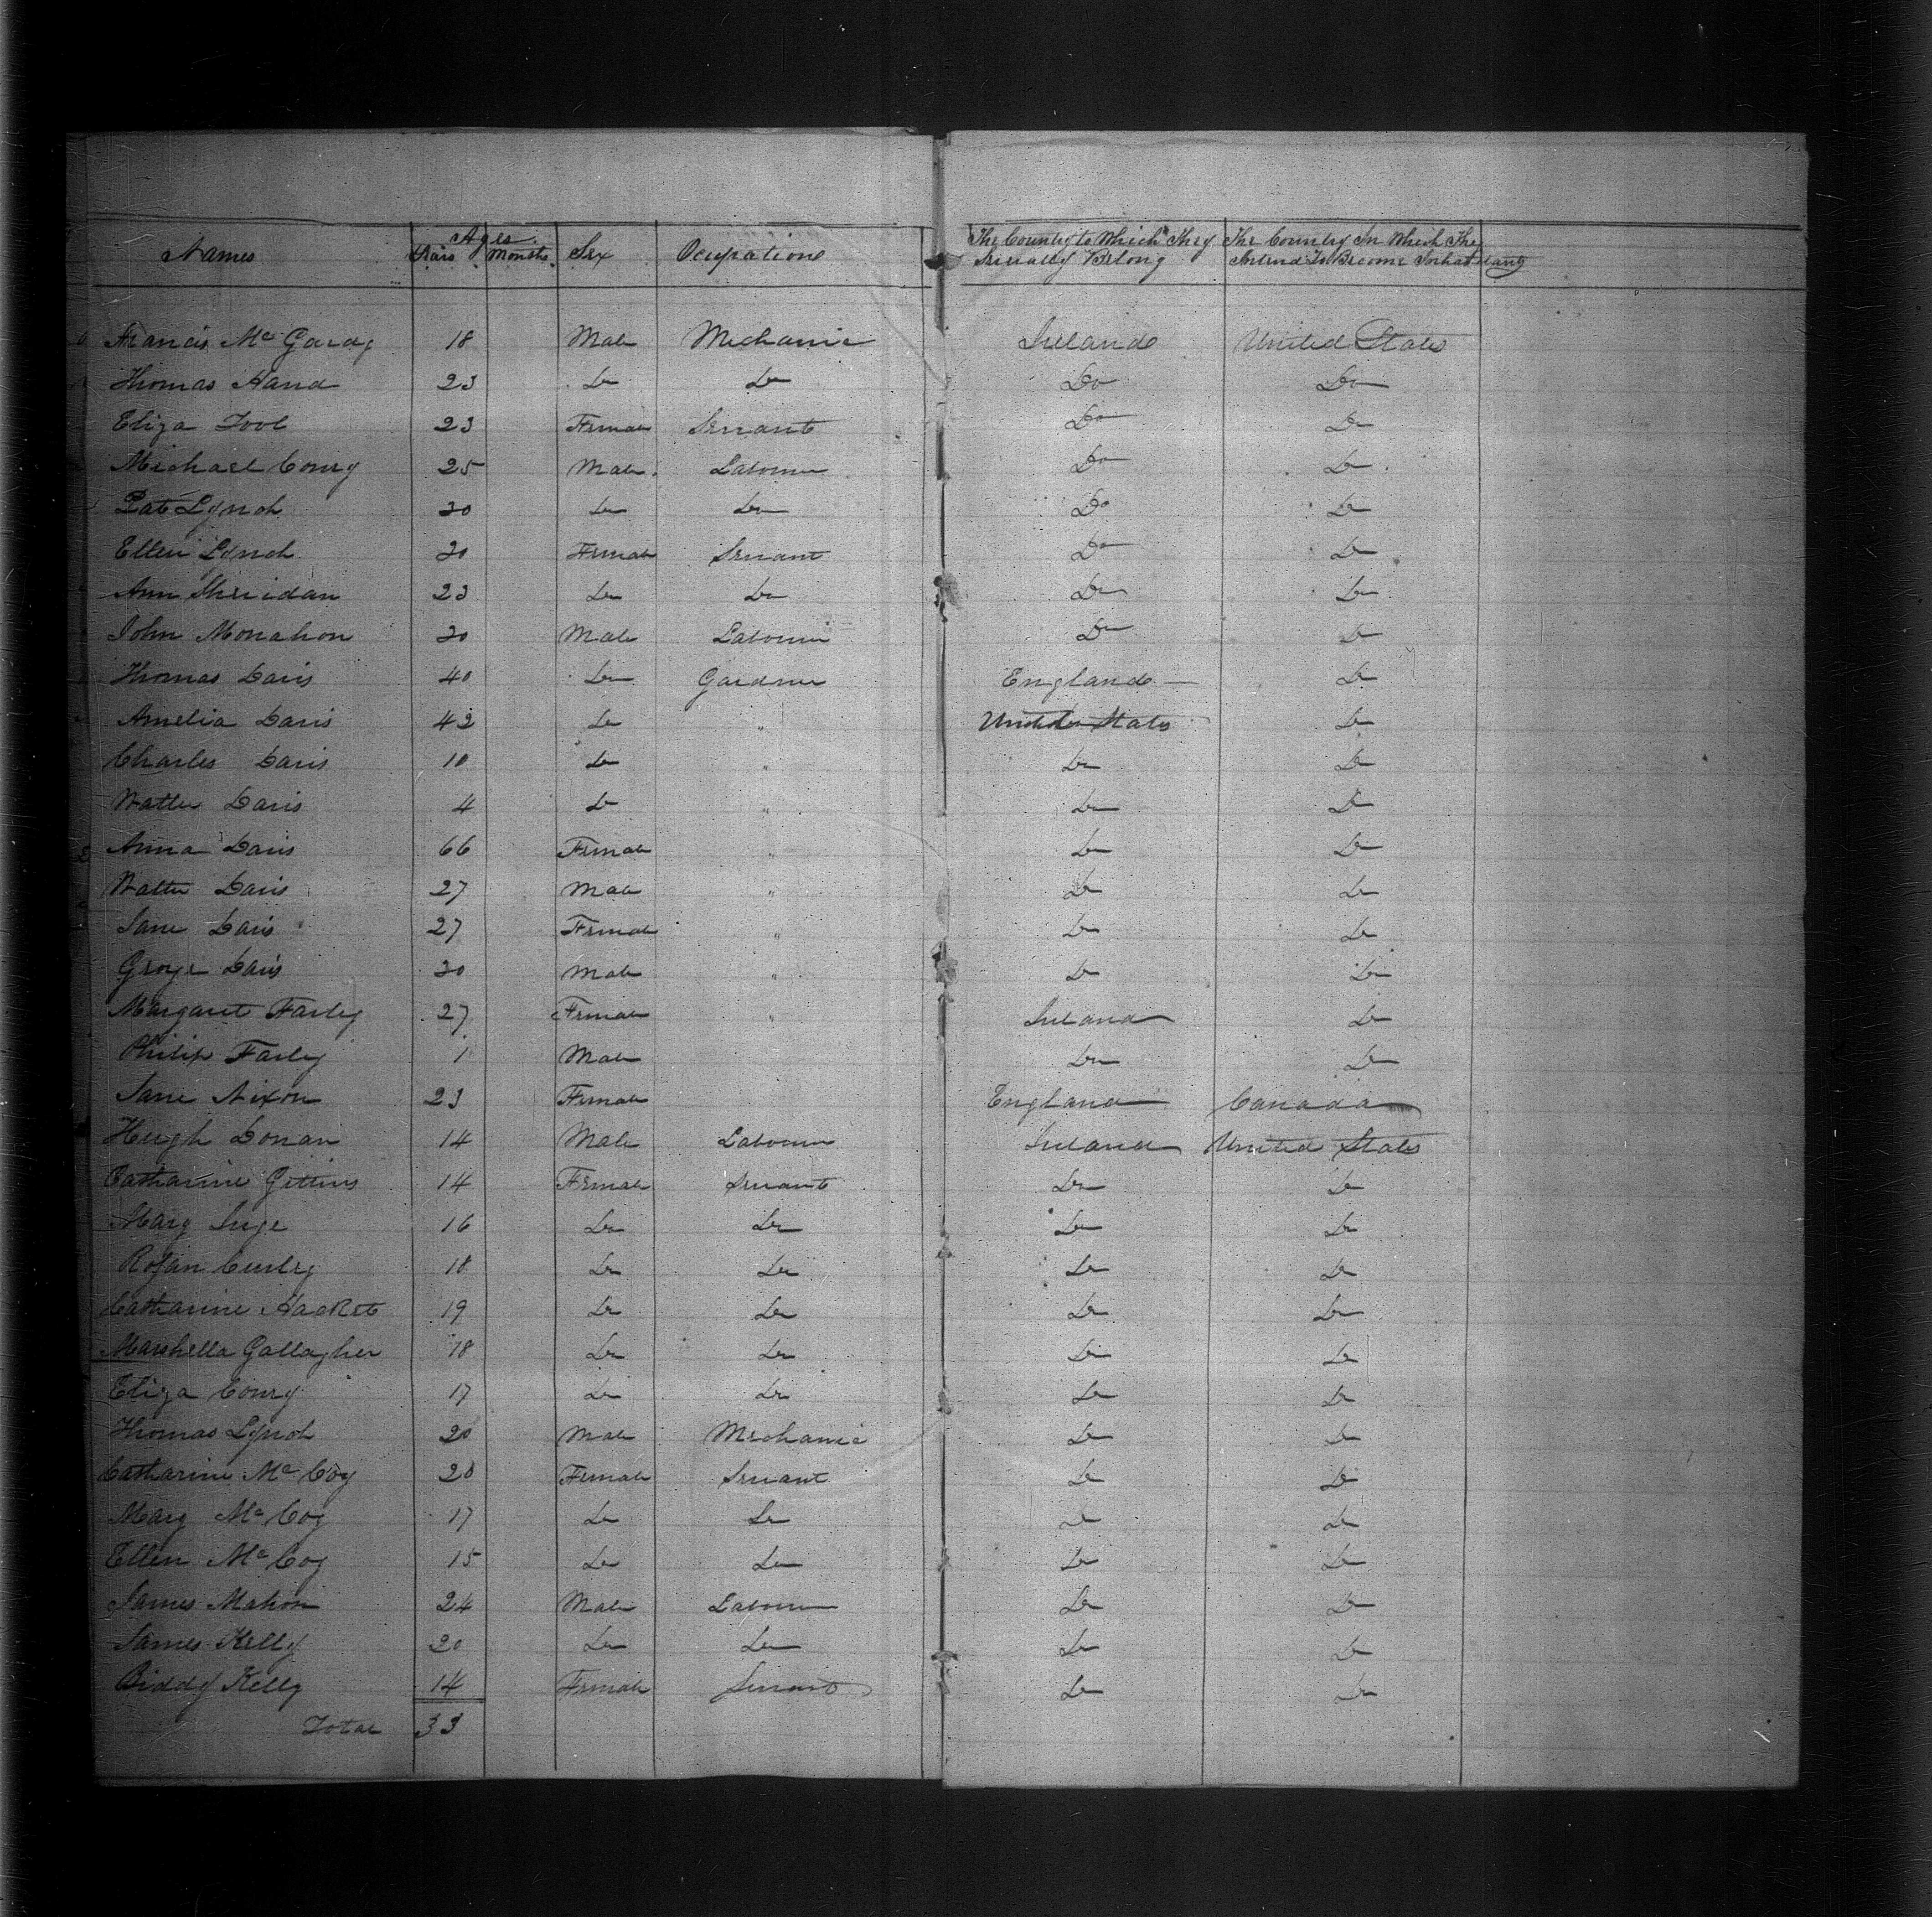 Names Ages Years Months Sex Ocupatione The Country to Which They Severally Belong The Country In Which The Intend To Become Inhabitants
Francis Mc Garay 18 Male Mechanic Ireland United States
Thomas Hand 23 Do Do Do Do
Eliza Tool 23 Female Servant Do Do
Michael Conry 25 Male Labourer Do Do
Pat Lynch 20 Do Do Do Do
Ellen Lynch 20 Female Servant Do Do
Ann Sheridan 23 Do Do Do Do
John Monahon 20 Male Labourer Do Do
Thomas Davis 40 Do Gardner England Do
Amelia Davis 42 Do " United States Do
Charles Davis 10 Do " Do Do
Walter Davis 4 Do " Do Do
Anna Davis 66 Female " Do Do
Walter Davis 27 Male " Do Do
Jane Davis 27 Female " Do Do
George Davis 20 Male " Do Do
Margaret Farley 27 Female " Ireland Do
Philip Farley 1 Male Do Do
Jane Nixon 23 Female England Canada
Hugh Donan 14 Male Labourer Ireland United States
Catharine Gettins 14 Female Servant Do Do
Mary 16 Do Do Do Do
Rosan Curley 18 Do Do Do Do
Catharine Hacket 19 Do Do Do Do
Marshella Gallagher 18 Do Do Do Do
Eliza Conry 17 Do Do Do Do
Thomas Lynch 20 Male Mechanic Do Do
Catharine Mc Coy 20 Female Servant Do Do
Mary Mc Coy 17 Do Do Do Do
Ellen Mc Coy 15 Do Do Do Do
James Mahon 24 Male Labourer Do Do
James Kelly 20 Do Do Do Do
Biddy Kelly 14 Female Servant Do Do
Total 33